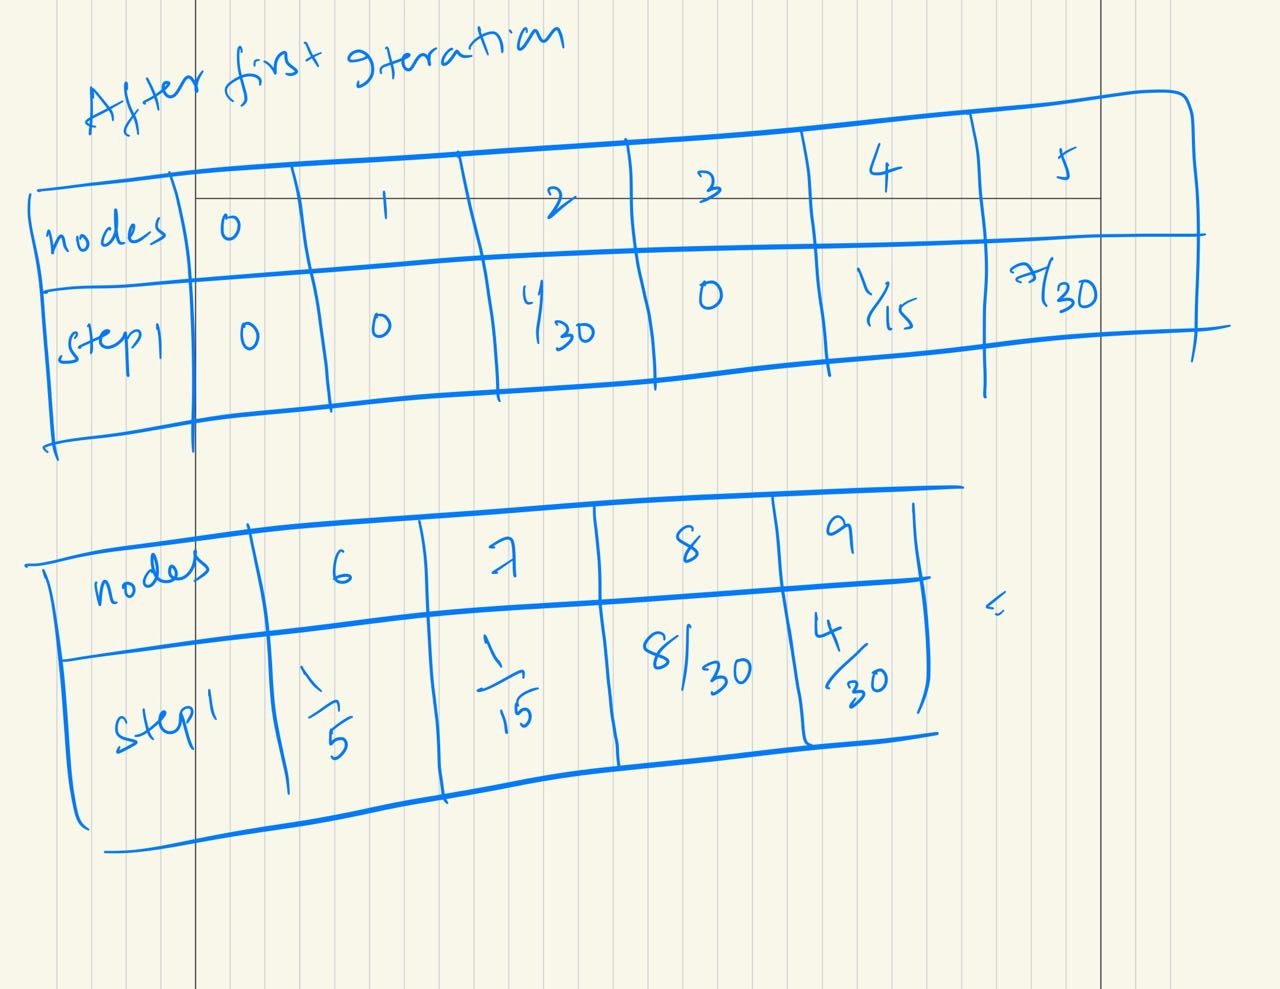 After first Iteration
nodes 0 1 2 3 4 5
step1 0 0 1/30 0 1/15 7/30
nodes 6 7 8 9
step1 1/5 1/15 8/30 4/30